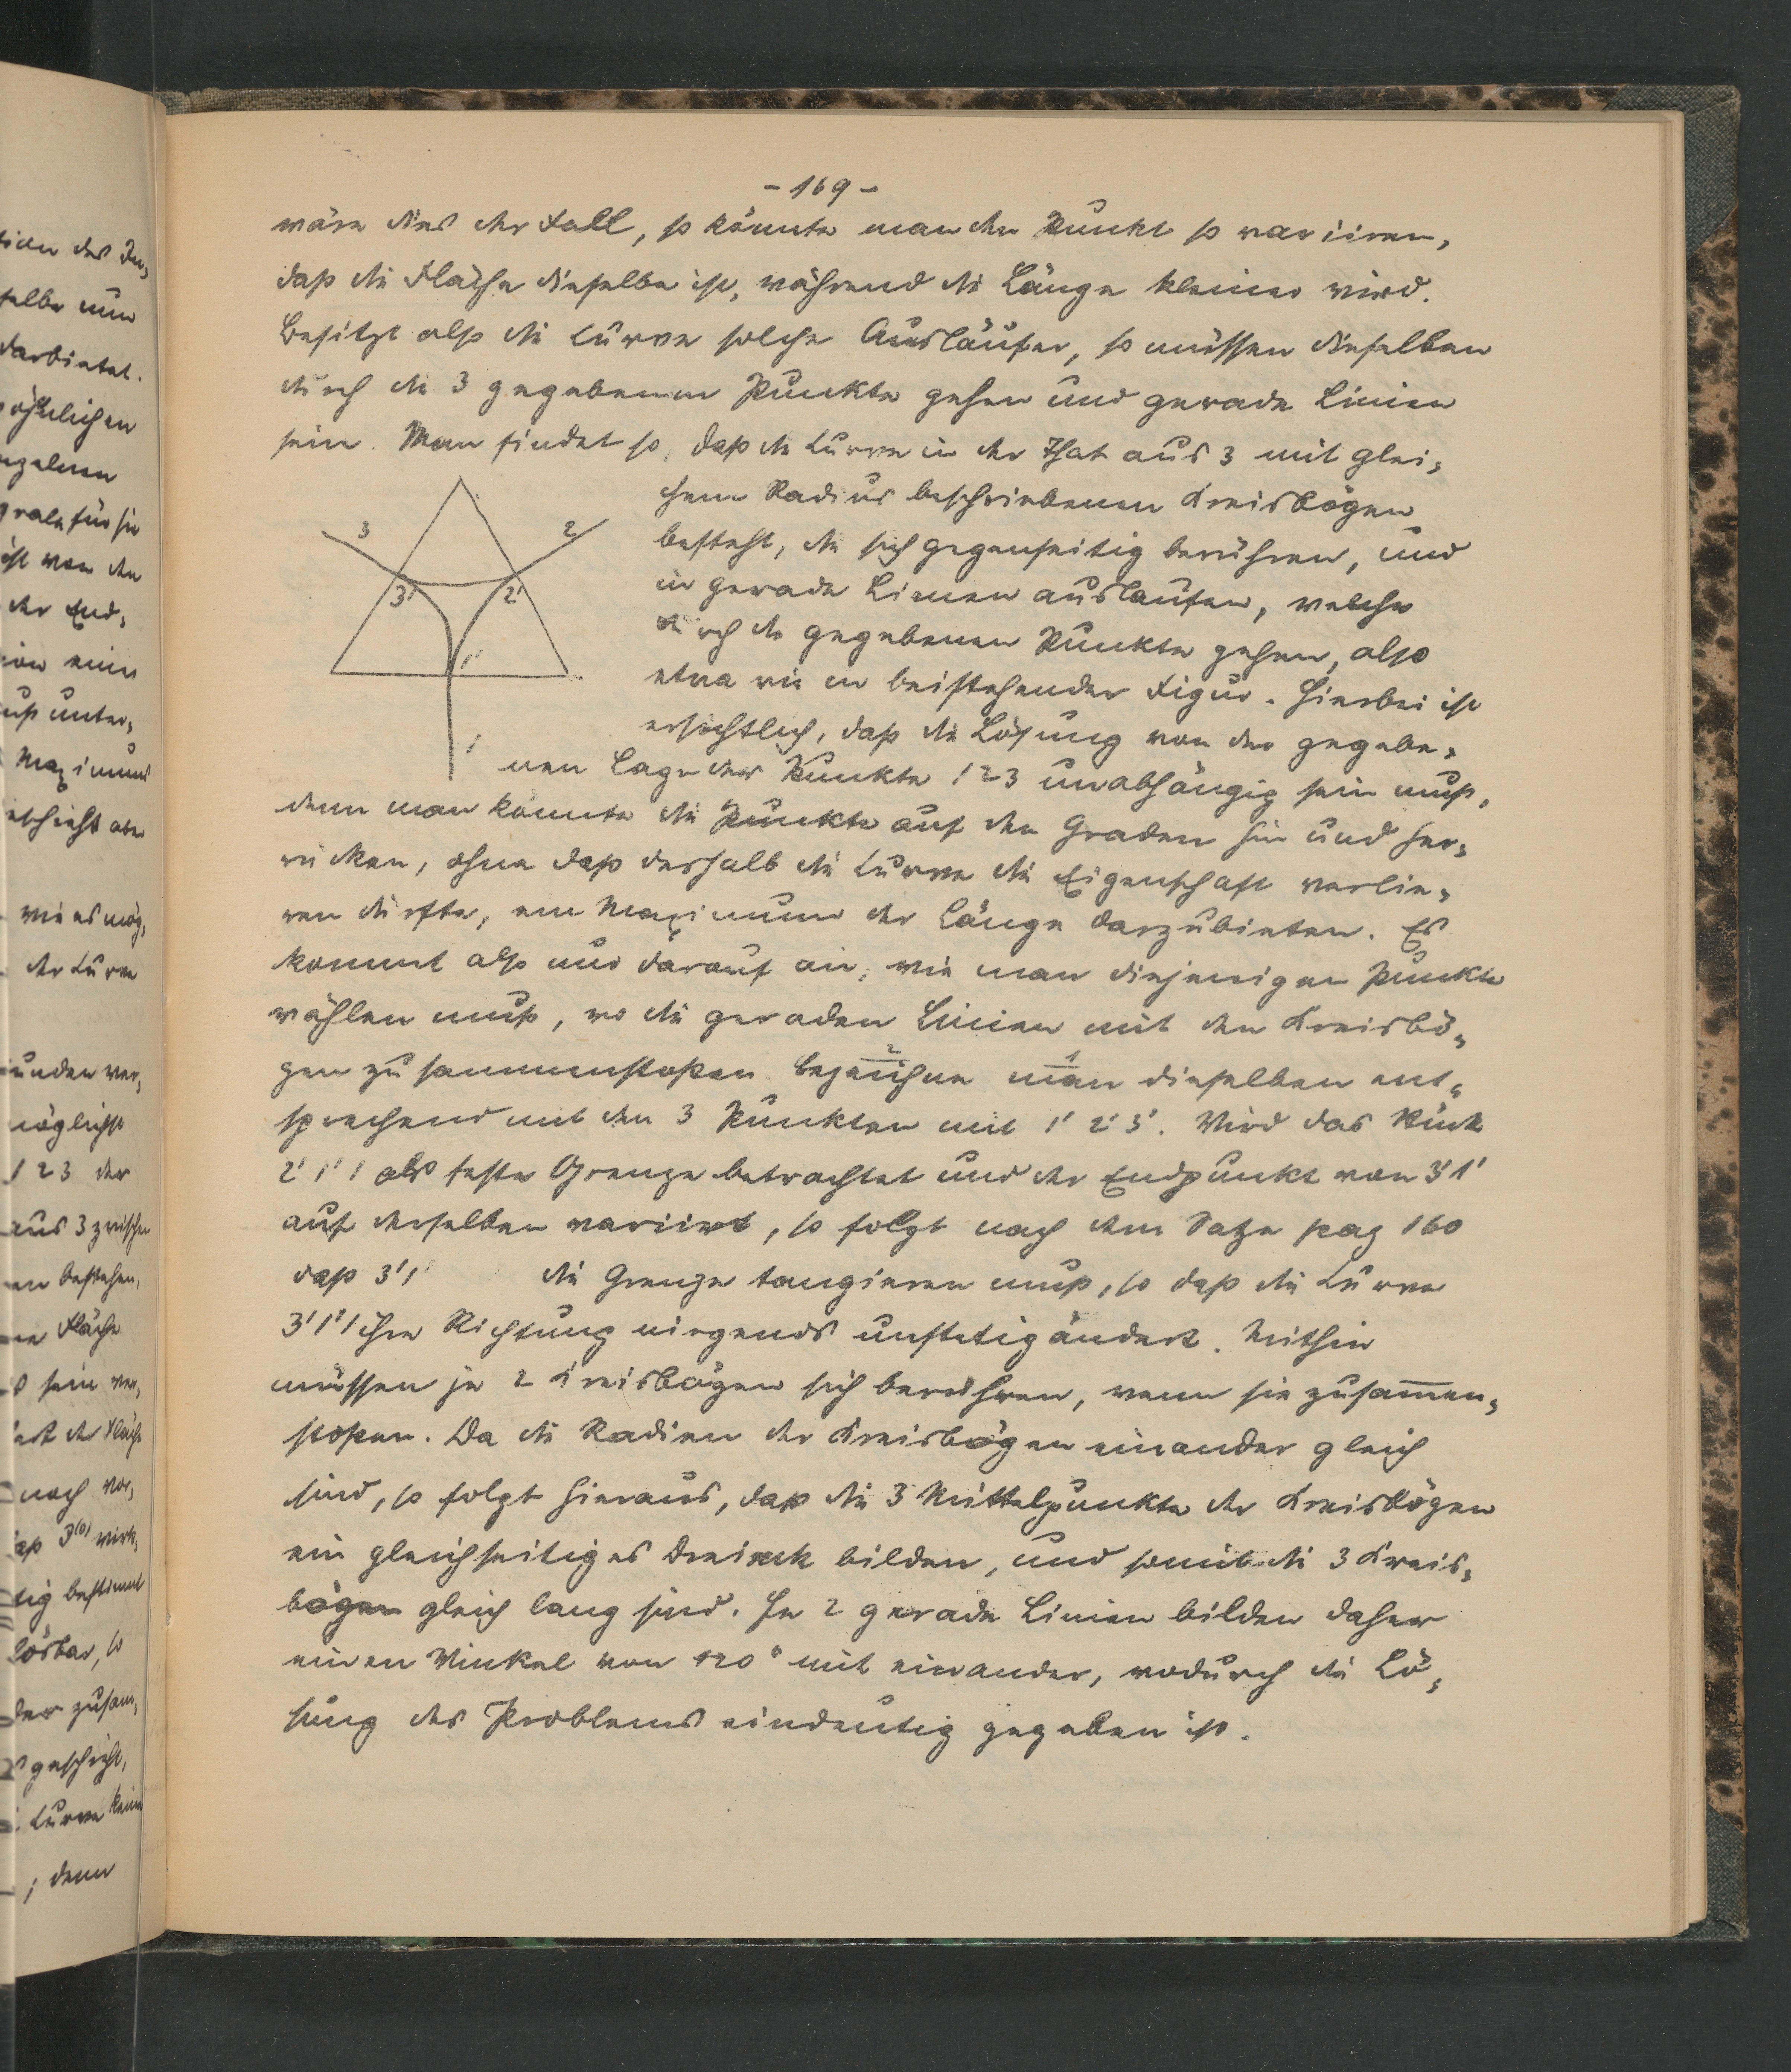 - 169 -
wäre dies der Fall, so könnte man den Punkt so variiren,
daß die Fläche dieselbe ist, während die Länge kleiner wird.
Besitzt also die Curve solche Ausläufer, so müssen dieselben
durch die 3 gegebenen Punkte gehen und gerade Linien
sein. Man findet so, daß die Curve in der That aus 3 mit glei-
chem Radius beschriebenen Kreisbögen
besteht, die sich gegenseitig berühren, und
in gerade Linien auslaufen, welche
durch die gegebenen Punkte gehen, also
etwa wie in beistehender Figur. Hierbei ist
ersichtlich, daß die Lösung von der gegebe-
nen Lage der Punkte 1 2 3 unabhängig sein muß,
3 2
3' 2'
1'
1
denn man könnte die Punkte auf den Graden hin und her-
rücken, ohne daß deshalb die Curve die Eigenschaft verlie-
ren dürfte, ein Maximum der Länge darzubieten. Es
kommt also nur darauf an, wie man diejenigen Punkte
wählen muß, wo die geraden Linien mit den Kreisbö-
gen zusammenstoßen. Bezeichne man dieselben ent-
2 1
sprechend mit den 3 Punkten mit 1' 2' 3'. Wird das Stück
2' 1' 1 als feste Grenze betrachtet und der Endpunkt von 3' 1'
auf derselben variirt, so folgt nach dem Satze pag 160
daß 3' 1' die Grenze tangieren muß, so daß die Curve
3' 1' 1 ihre Richtung nirgends unstetig ändert. Mithin
müssen je 2 Kreisbögen sich berühren, wenn sie zusam̅en-
stoßen. Da die Radien der Kreisbögen einander gleich
sind, so folgt hieraus, daß die 3 Mittelpunkte der Kreisbögen
ein gleichseitiges Dreieck bilden, und somit die 3 Kreis-
bögen gleich lang sind. Je 2 gerade Linien bilden daher
einen Winkel von 120° mit einander, wodurch die Lö-
sung des Problems eindeutig gegeben ist.